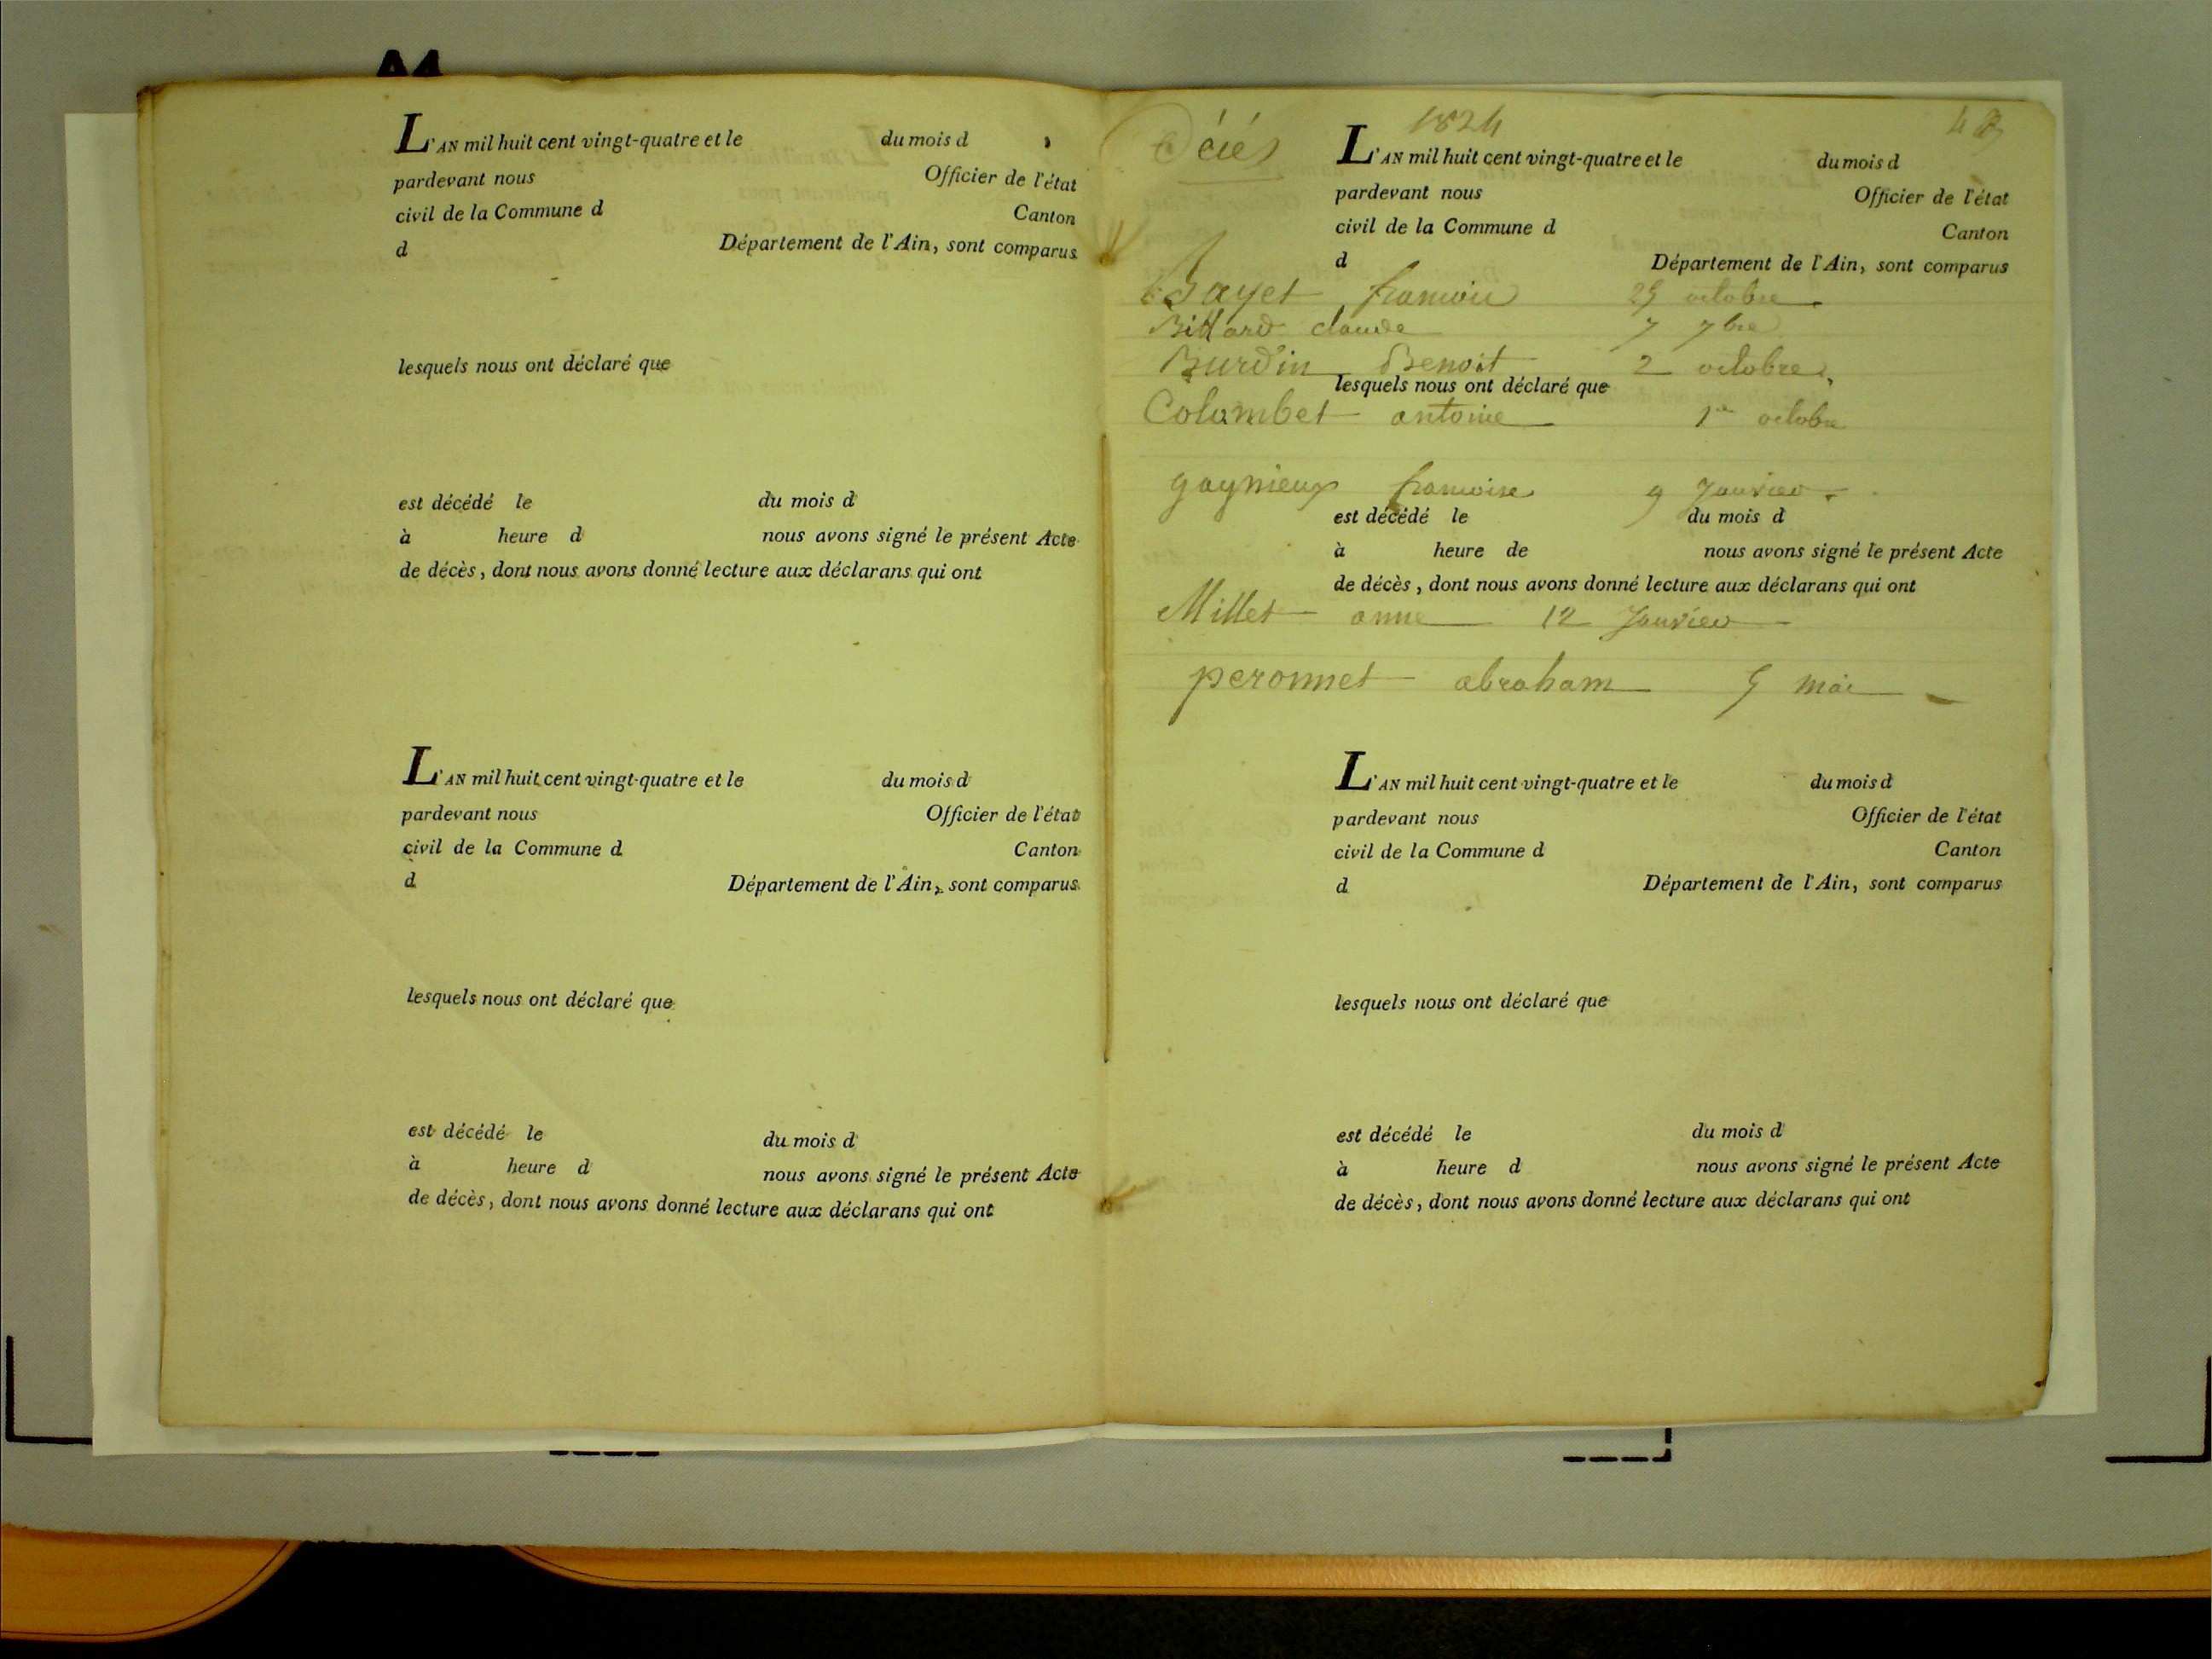 L'AN mil huit cent vingt-quatre et le du mois d
pardevant nous Officier de l'état
civil de la Commune d Canton
d Département de l'Ain, sont comparus
lesquels nous ont déclaré que
est décédé le du mois d
à heure d nous avons signé le présent Acte
de décès, dont nous avons donné lecture aux déclarans qui ont
L'AN mil huit cent vingt-quatre et le du mois d
pardevant nous Officier de l'état
civil de la Commune d Canton
d Département de l'Ain, sont comparus
lesquels nous ont déclaré que
est décédé le du mois d
à heure d nous avons signé le présent Acte
de décès, dont nous avons donné lecture aux déclarans qui ont
Décés 1824
L'AN mil huit cent vingt-quatre et le du mois d
pardevant nous Officier de l'état
civil de la Commune d Canton
d Département de l'Ain, sont comparus
Bayet octobre
Billard claude 7 7bre
Burdin Benoit 2 octobre
lesquels nous ont déclaré que
Colombet antoine 1er octobre
gagnieux francoise 9 Janvier
est décédé le du mois d
à heure de nous avons signé le présent Acte
de décès, dont nous avons donné lecture aux déclarans qui ont
Millet anne 12 Janvier
peronnet abraham 5 mai
L'AN mil huit cent vingt-quatre et le du mois d
pardevant nous Officier de l'état
civil de la Commune d Canton
d Département de l'Ain, sont comparus
lesquels nous ont déclaré que
est décédé le du mois d
à heure d nous avons signé le présent Acte
de décès, dont nous avons donné lecture aux déclarans qui ont